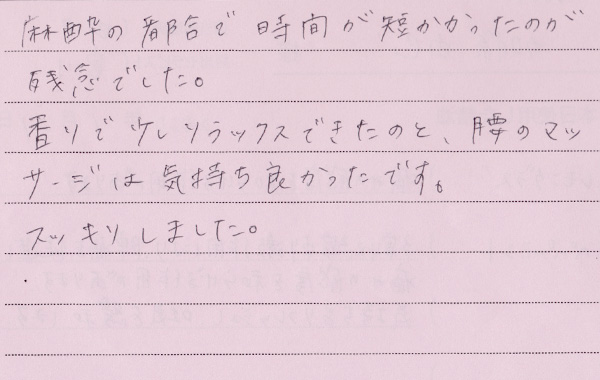 麻酔の都合で時間が短かかったのが
残念でした。
香りで少しリラックスできたのと、腰のマッ
サージは気持ち良かったです。
スッキリしました。